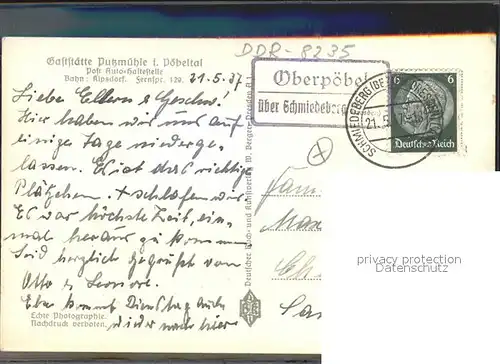 DDR-8235
Gaststätte Putzmühle i. Pöbeltal
Post Auto-Haltestelle
Bahn: Kipsdorf. Fernspr. 129.
21.5.37
Oberpöbel
über Schmiedeberg
SCHMIEDEBERG (BZ
21.5.
6 6
Deutsches Reich
Liebe Eltern & Geschw.!
Hier haben wir uns auf
einige Tage niederge-
lassen. Es ist das richtige
Plätzchen. schlafen wir
Es war höchste Zeit, ein-
mal heraus zu kommen
Seid herzlich gegrüßt von
Otto & Leonore.
kommt Dienstag auch
wieder nach hier
Echte Photographie.
Nachdruck verboten.
Deutscher Buch- und Kunstverlag W. Berger, Dresden A. 1
Fam.
Max
Ch
privacy protection
Datenschutz